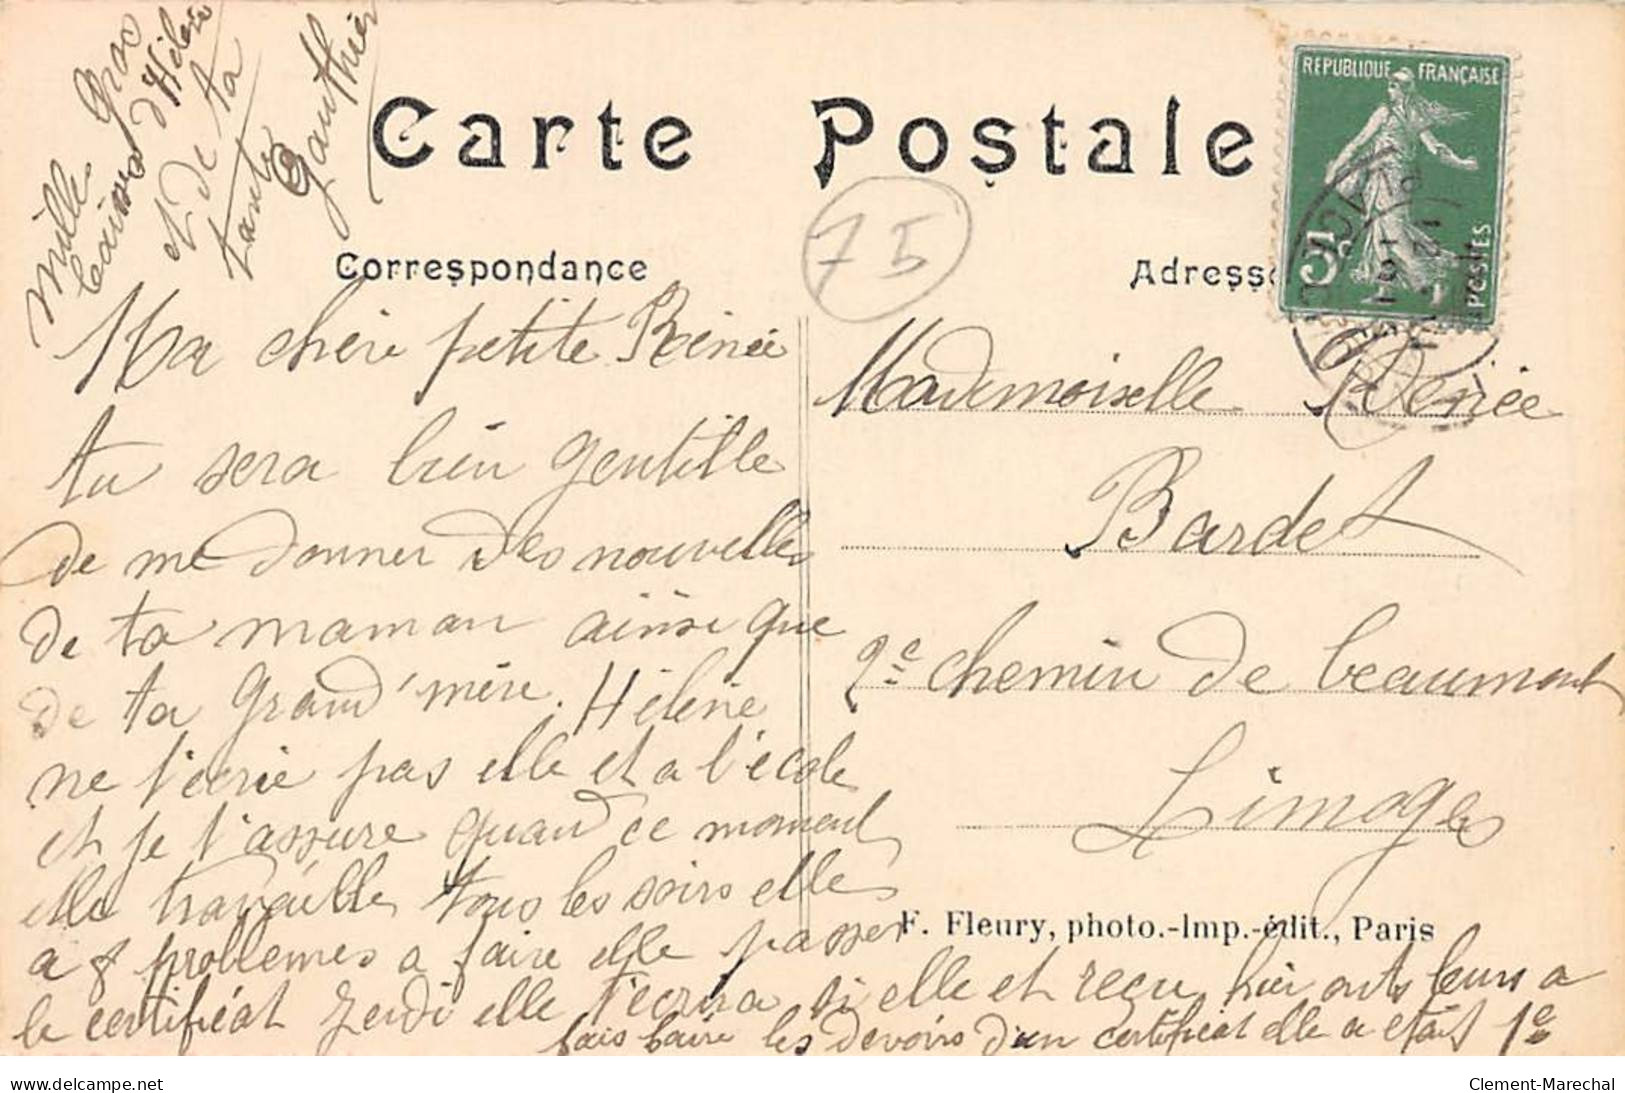 Mille Gros
baisers d'Hélène
et de ta
tante
Gauthier
Carte Postale
REPUBLIQUE FRANÇAISE
5c
POSTES
75
Correspondance
Adresse
Ma chère petite Rénée
tu sera bien gentille
de me donner des nouvelles
de ta maman ainsi que
de ta Grand'mère. Hélène
ne t'écrie pas elle et a l'école
et je t'assure quand ce moment
elle travaille tous les soirs elle
a 8 problèmes a faire elle passer
le certificat jeudi elle t'écrira si elle et reçu hier onts leurs a
fais faire les devoirs d'un certificat elle a était 1e
Mademoiselle Renée
Bardet
2e chemin de beaumont
Limoges
F. Fleury, photo.-Imp.-édit., Paris
delcampe.net
Clement-Marechal